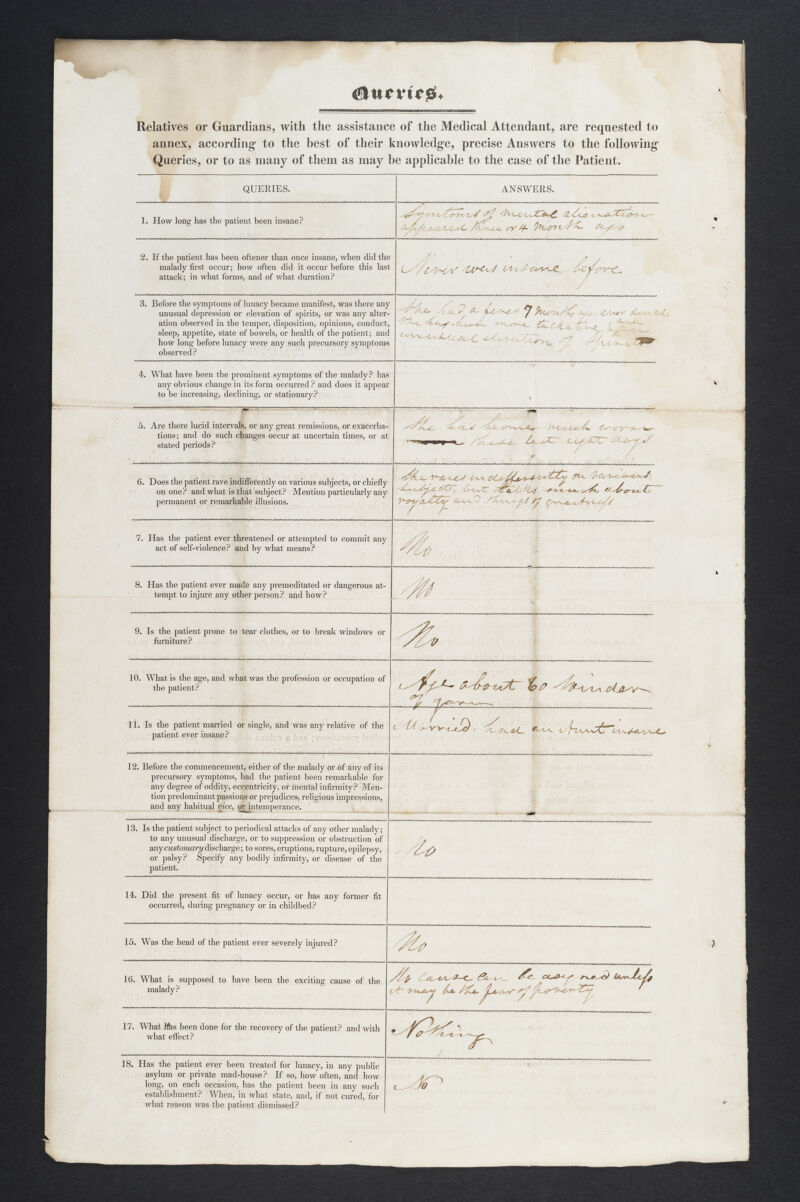 Queries.
Relatives or Guardians, with the assistance of the Medical Attendant, are requested to
annex, according to the best of their knowledge, precise Answers to the following
Queries, or to as many of them as may be applicable to the case of the Patient.
QUERIES.
ANSWERS.
1. How long has the patient been insane?
Symtoms of mental alienation
appeared three or 4 month ago
2. If the patient has been oftener than once insane, when did the
malady first occur; how often did it occur before this last
attack; in what forms, and of what duration?
Never was insane before
3. Before the symptoms of lunacy became manifest, was there any
unusual depression or elevation of spirits, or was any alter-
ation observed in the temper, disposition, opinions, conduct,
sleep, appetite, state of bowels, or health of the patient; and
how long before lunacy were any such precursory symptoms
observed?
She had a fever 7 month ago ever since
she has been more talkative
unusual elevation of spirits
4. What have been the prominent symptoms of the malady? has
any obvious change in its form occurred? and does it appear
to be increasing, declining, or stationary?
5. Are there lucid intervals, or any great remissions, or exacerba-
tions; and do such changes occur at uncertain times, or at
stated periods?
She has become much worse
these last eight days
6. Does the patient rave indifferently on various subjects, or chiefly
on one? and what is that subject? Mention particularly any
permanent or remarkable illusions.
She raves indifferently on various
subjects, but talks much about
royalty and things of greatness
7. Has the patient ever threatened or attempted to commit any
act of self-violence? and by what means?
No
8. Has the patient ever made any premeditated or dangerous at-
tempt to injure any other person? and how?
No
9. Is the patient prone to tear clothes, or to break windows or
furniture?
No
10. What is the age, and what was the profession or occupation of
the patient?
Age about 60 Winder
of yarn
11. Is the patient married or single, and was any relative of the
patient ever insane?
Married. had an Aunt insane
12. Before the commencement, either of the malady or of any of its
precursory symptoms, had the patient been remarkable for
any degree of oddity, eccentricity, or mental infirmity? Men-
tion predominant passions or prejudices, religious impressions,
and any habitual vice, or intemperance.
13. Is the patient subject to periodical attacks of any other malady;
to any unusual discharge, or to suppression or obstruction of
any customary discharge; to sores, eruptions, rupture, epilepsy,
or palsy? Specify any bodily infirmity, or disease of the
patient.
No
14. Did the present fit of lunacy occur, or has any former fit
occurred, during pregnancy or in childbed?
15. Was the head of the patient ever severely injured?
No
16. What is supposed to have been the exciting cause of the
malady?
No cause can be unless
it may be the fear of poverty
17. What has been done for the recovery of the patient? and with
what effect?
Nothing
18. Has the patient ever been treated for lunacy, in any public
asylum or private mad-house? If so, how often, and how
long, on each occasion, has the patient been in any such
establishment? When, in what state, and, if not cured, for
what reason was the patient dismissed?
No